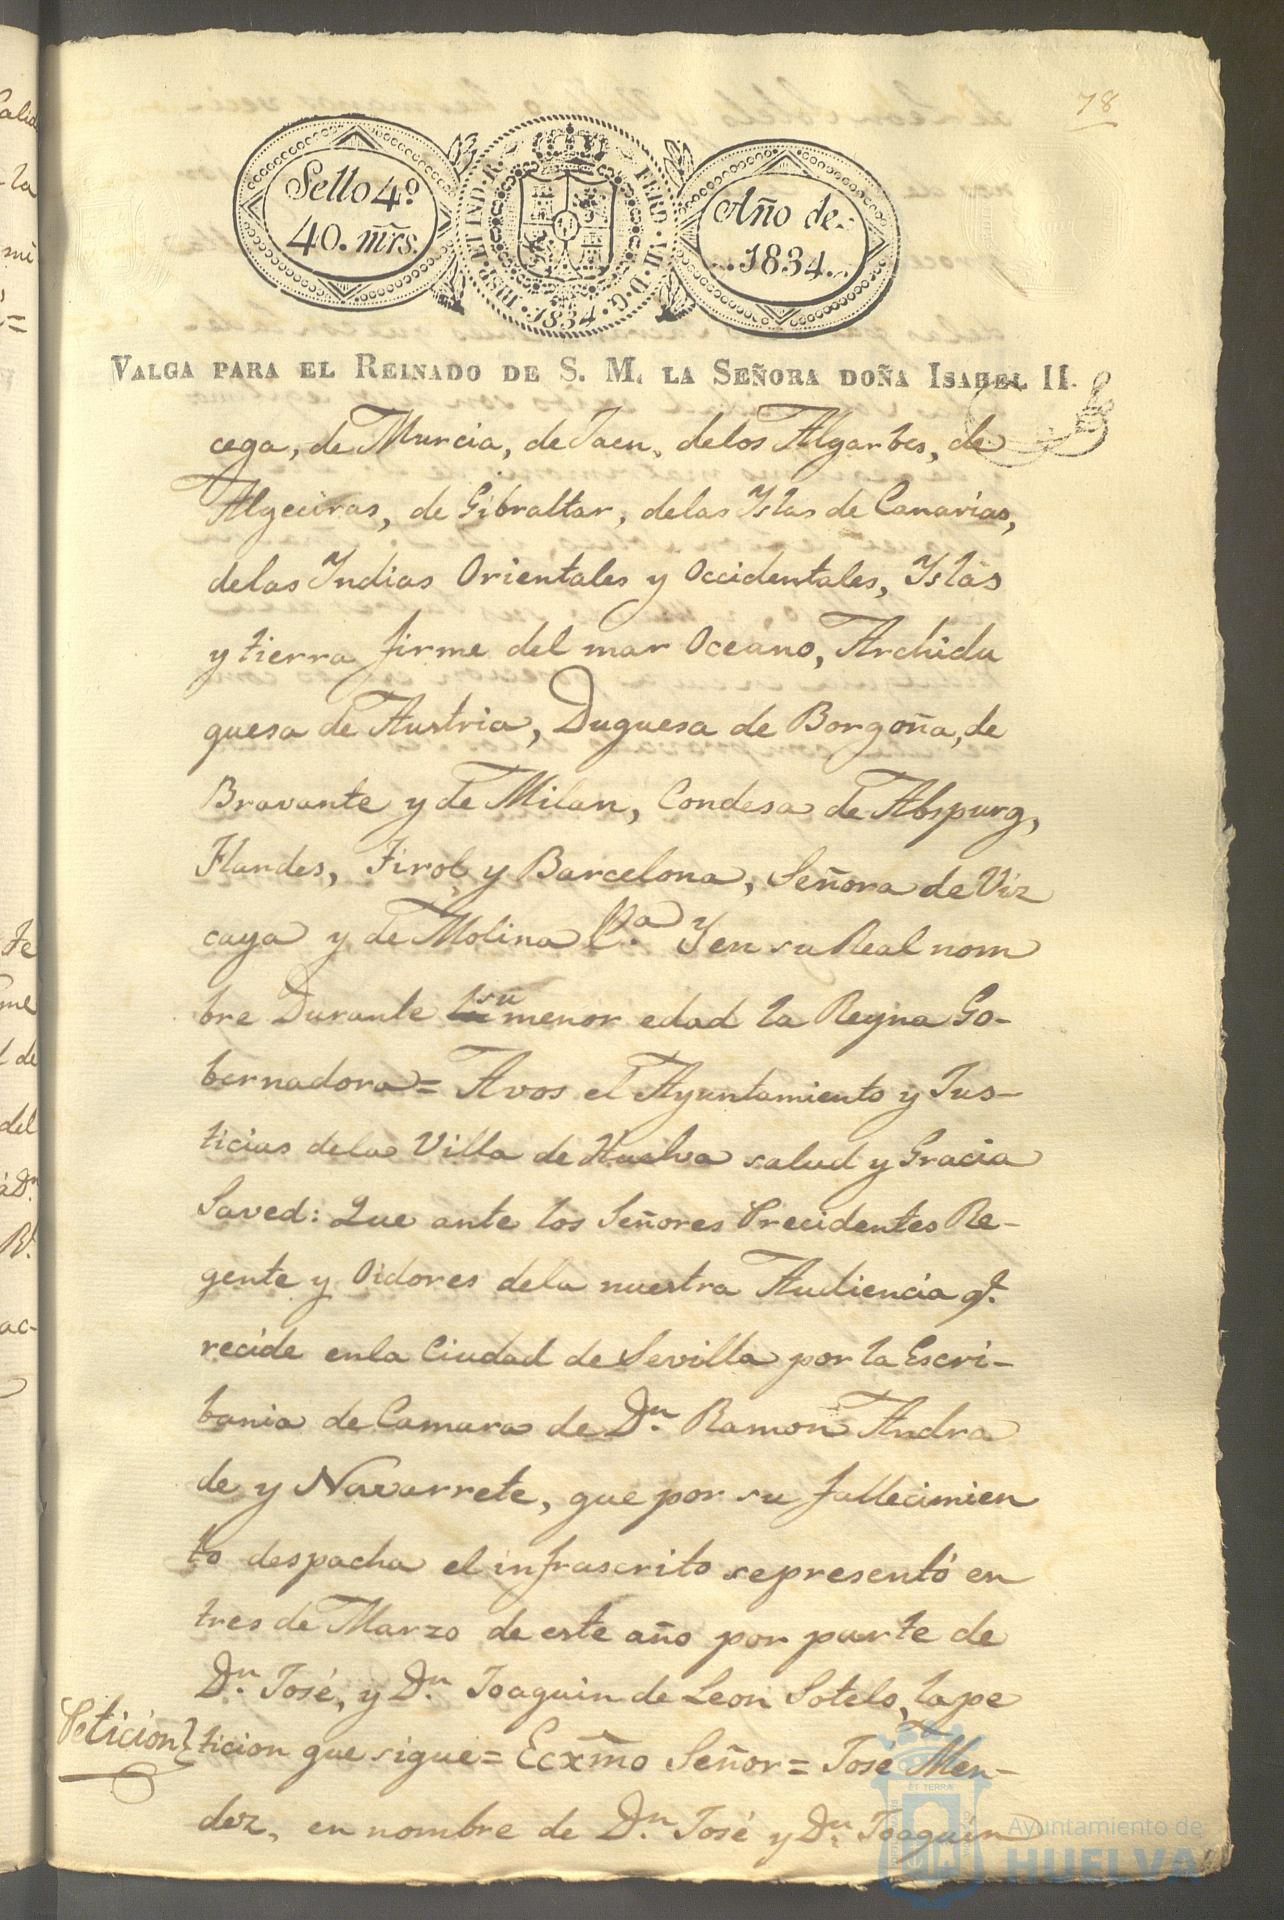 78
Sello 4º
40. mrs.
HISP. ET IND. R.
FERD. VII. D. G.
1834
Año de
1834.
VALGA PARA EL REINADO DE S. M. LA SEÑORA DOÑA ISABEL II.
cega, de Murcia, de Jaen, delos Algarbes, de
Algeciras, de Gibraltar, delas Yslas de Canarias,
delas Yndias Orientales y Occidentales, Yslas
y tierra firme del mar Oceano, Archidu
quesa de Austria, Duquesa de Borgoña, de
Bravante y de Milan, Condesa de Abspurg,
Flandes, Tirol y Barcelona, Señora de Viz
caya y de Molina &.a Y en su Real nom
bre Durante su menor edad la Reyna Go-
bernadora= Avos el Ayuntamiento y Jus-
ticias dela Villa de Huelva salud y Gracia
Saved: Que ante los Señores Precidentes Re-
gente y Oidores dela nuestra Audiencia q.e
recide enla Ciudad de Sevilla por la Escri-
bania de Camara de D.n Ramon Andra
de y Navarrete, que por su fallecimien
to despacha el infrascrito se presentó en
tres de Marzo de este año por parte de
D.n José, y D.n Joaquin de Leon Sotelo, la pe
Peticion} ticion que sigue= Ecxmo Señor= José Men-
dez, en nombre de D.n José y D.n Joaquin
ET TERRÆ
Ayuntamiento de
HUELVA